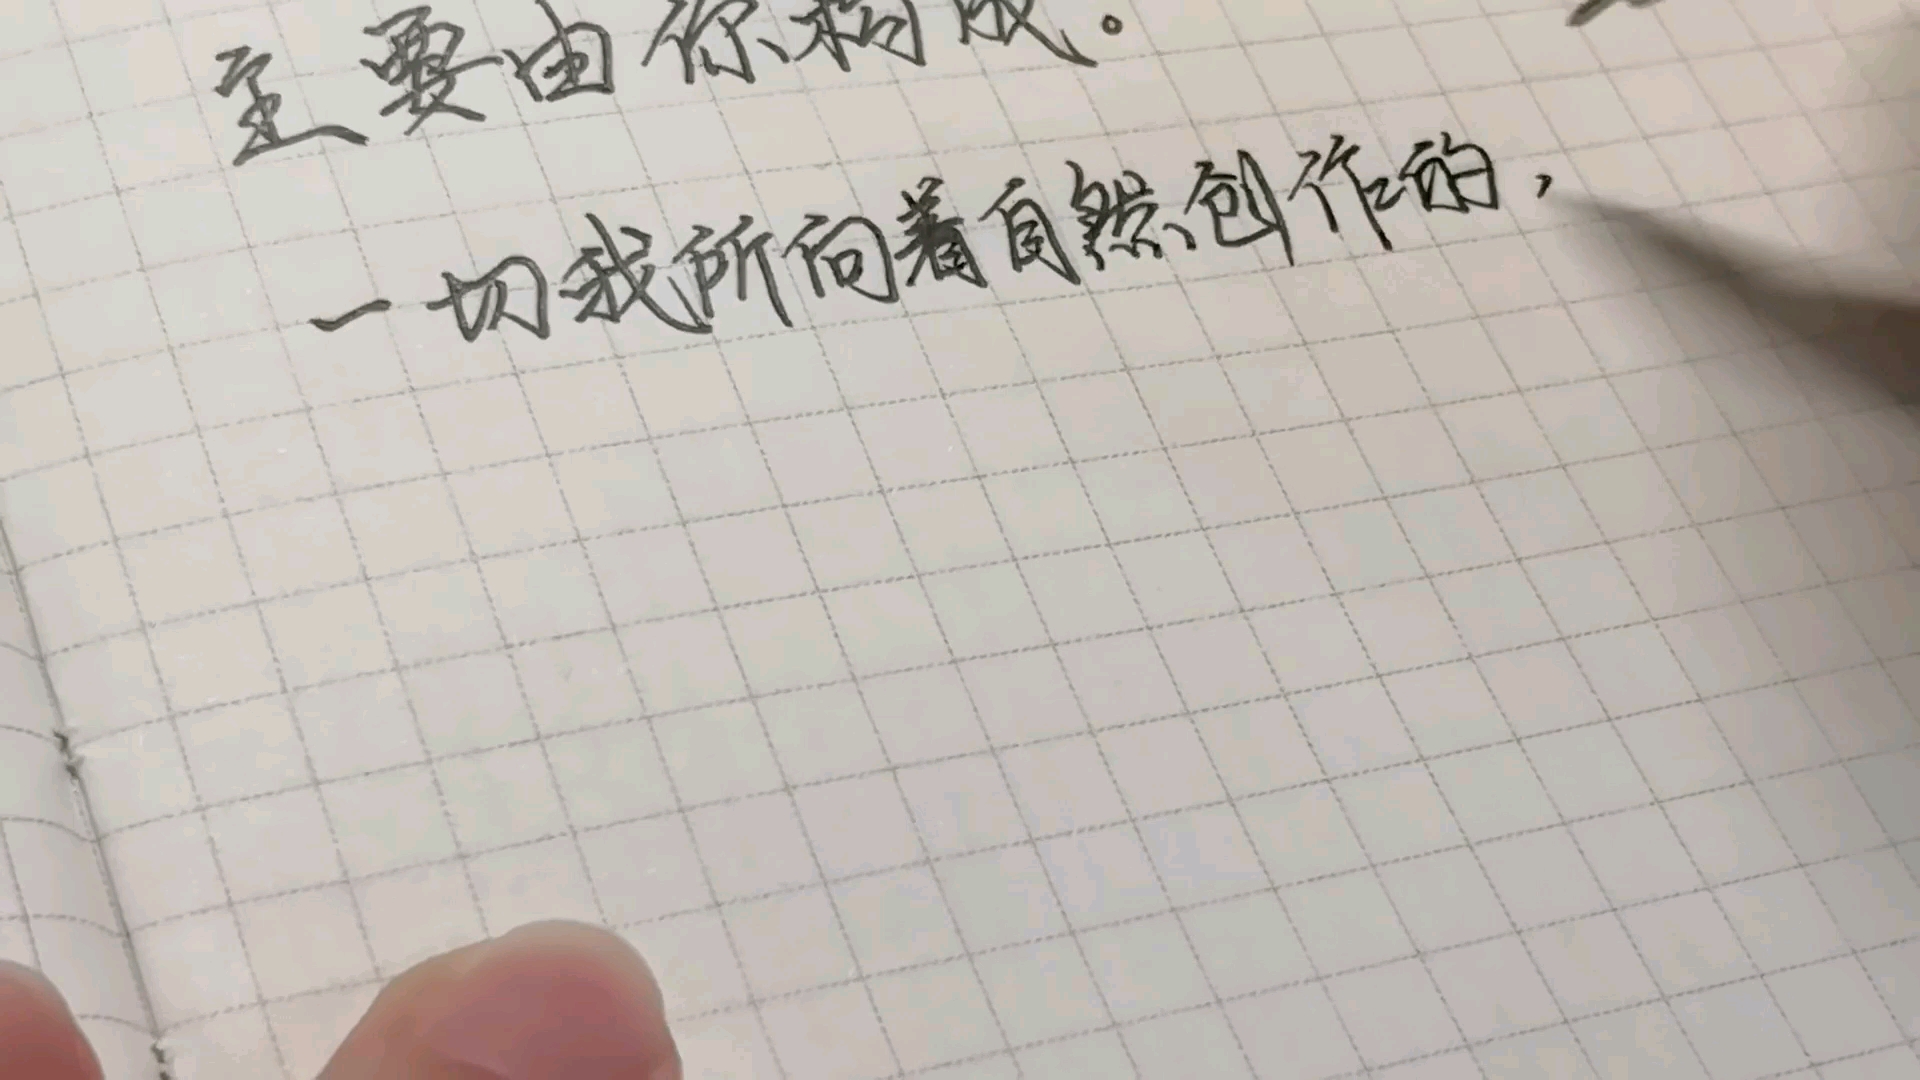 主要由你构成。
一切我所向着自然创作的，